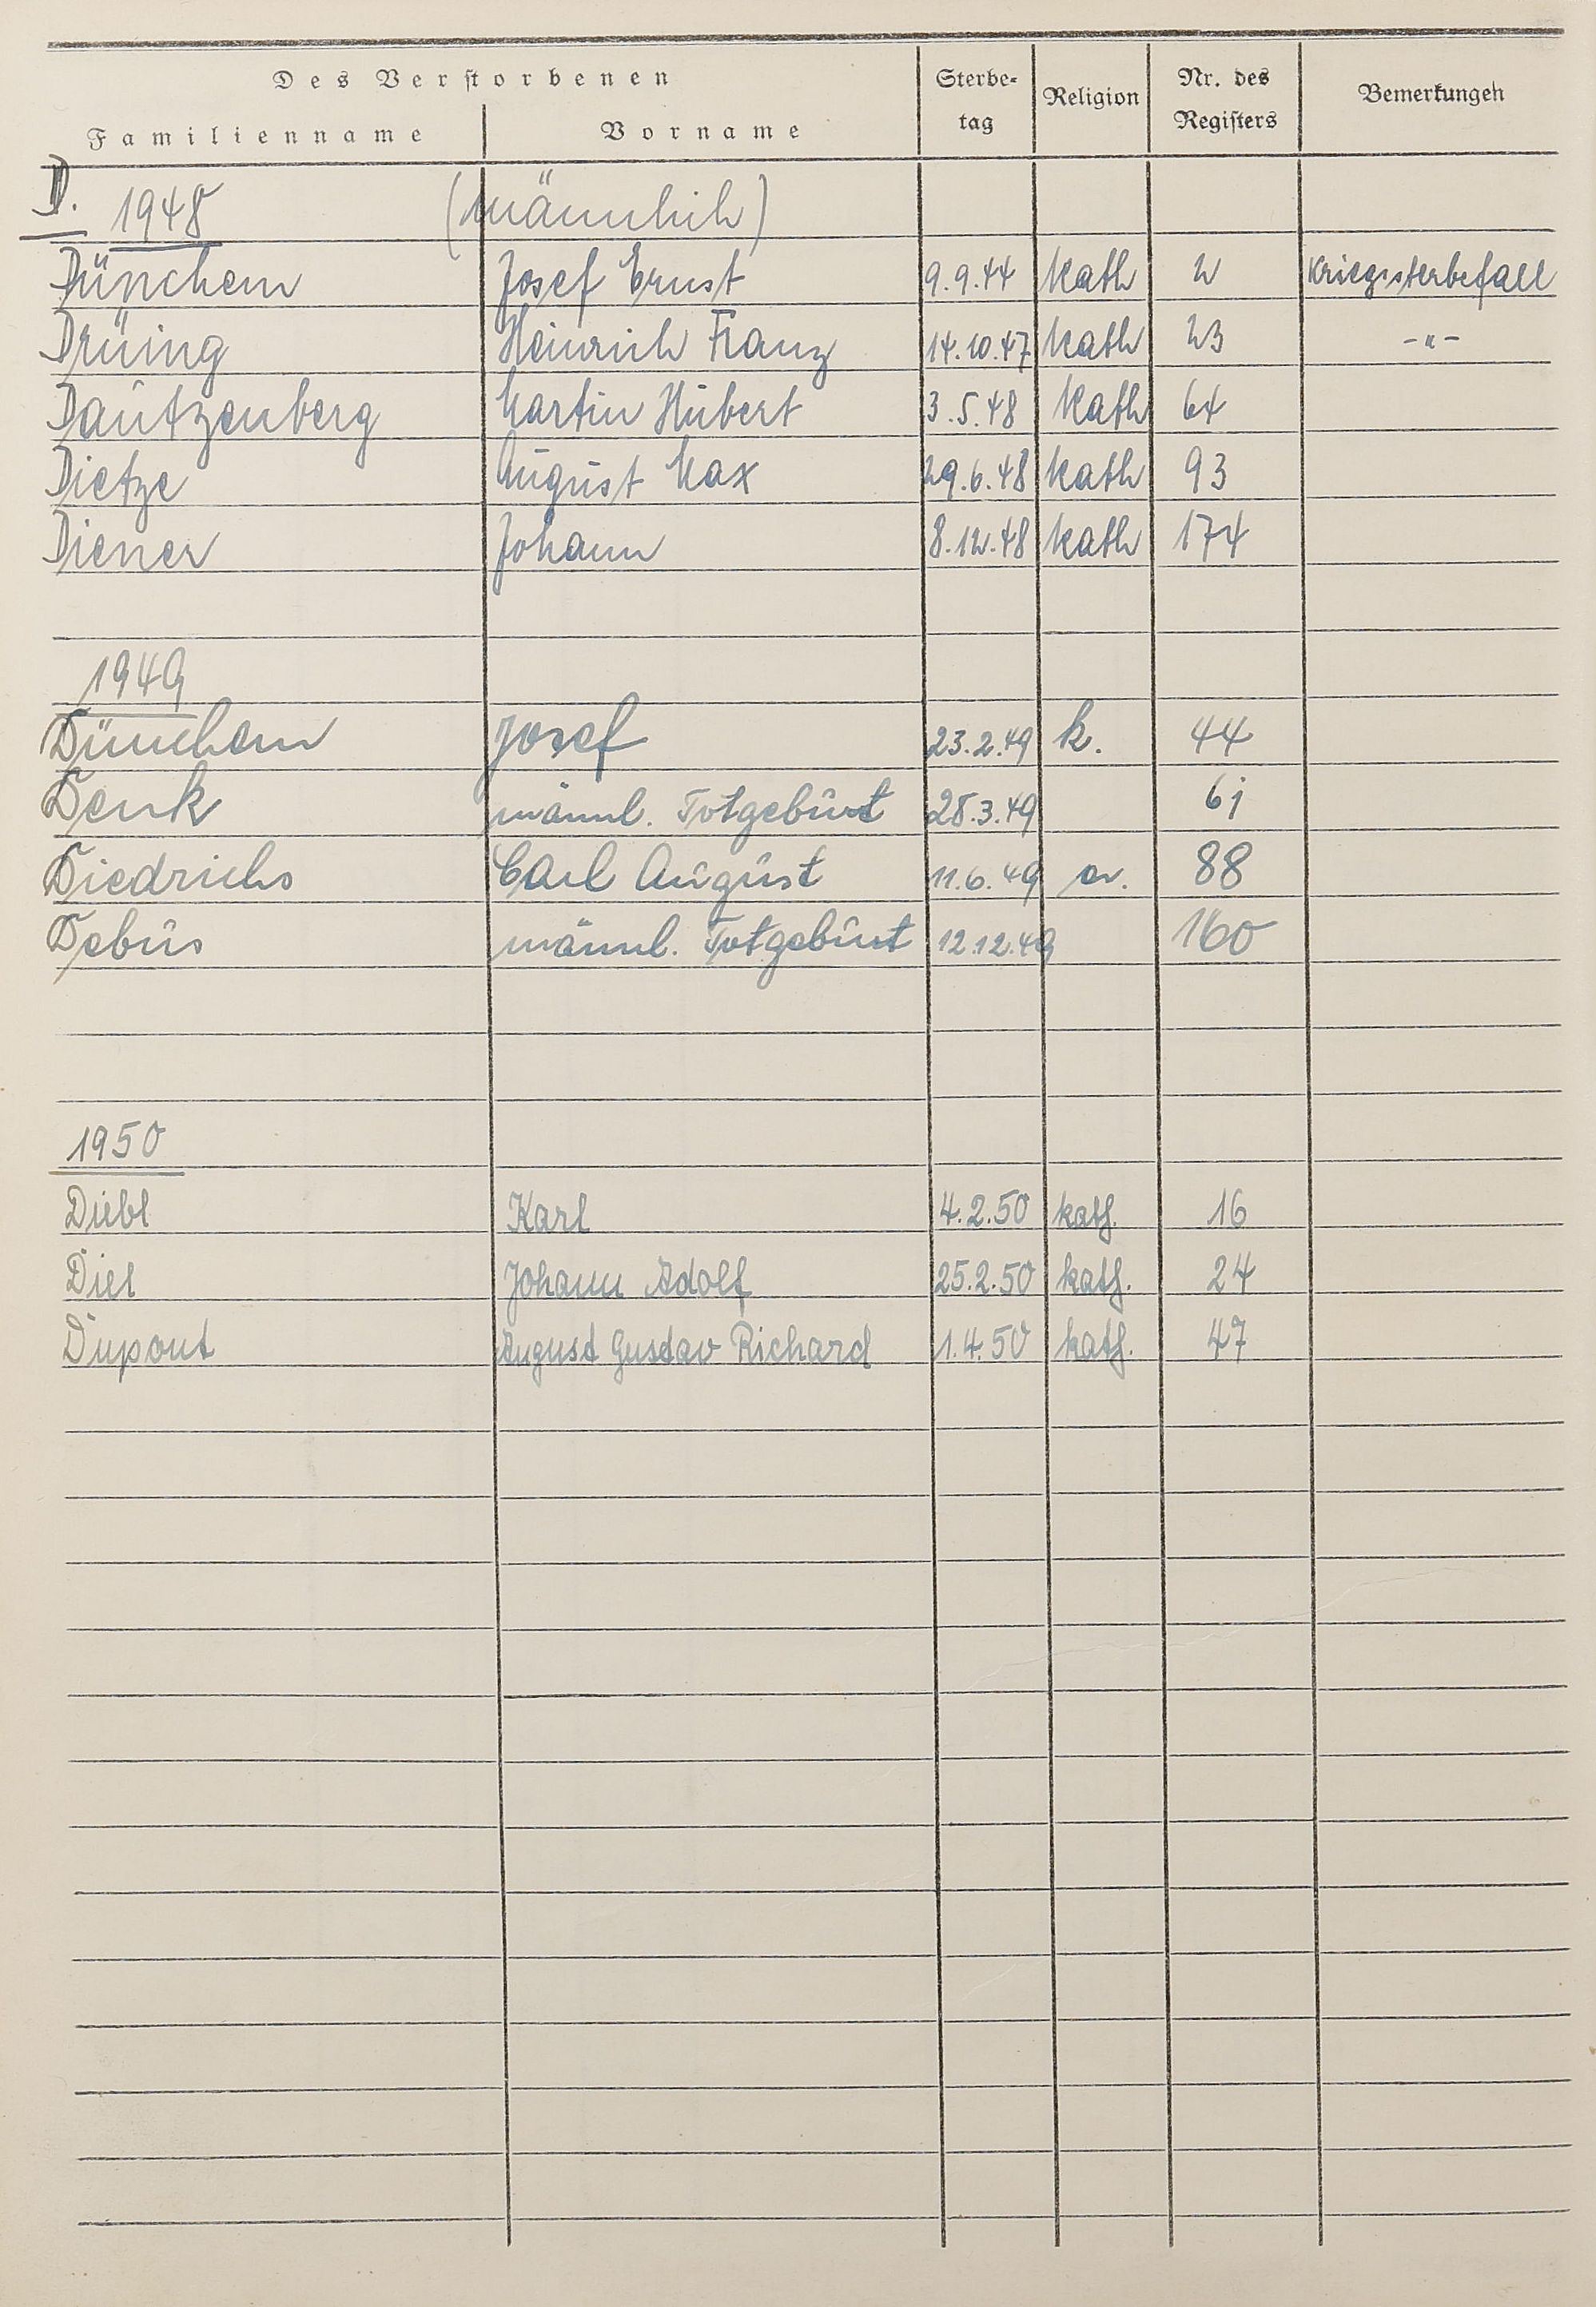 Des Verstorbenen Sterbe- Religion Nr. des Bemerkungen
Familienname Vorname tag Registers
D. 1948 (männlich)
Dünchem Josef Ernst 9.9.44 Kath 2 Kriegssterbefall
Drüing Heinrich Franz 14.10.47 Kath 23 -"-
Dautzenberg Martin Hubert 3.5.48 Kath 64
Dietze August Max 29.6.48 Kath 93
Diener Johann 8.12.48 Kath 174
1949
Dünchem Josef 23.2.49 k. 44
Denk männl. Totgeburt 28.3.49 61
Diedrichs Carl August 11.6.49 ev. 88
Debus männl. Totgeburt 12.12.49 160
1950
Karl 4.2.50 kath. 16
Diel Johann Adolf 25.2.50 kath. 24
Dupont August Gustav Richard 1.4.50 kath. 47